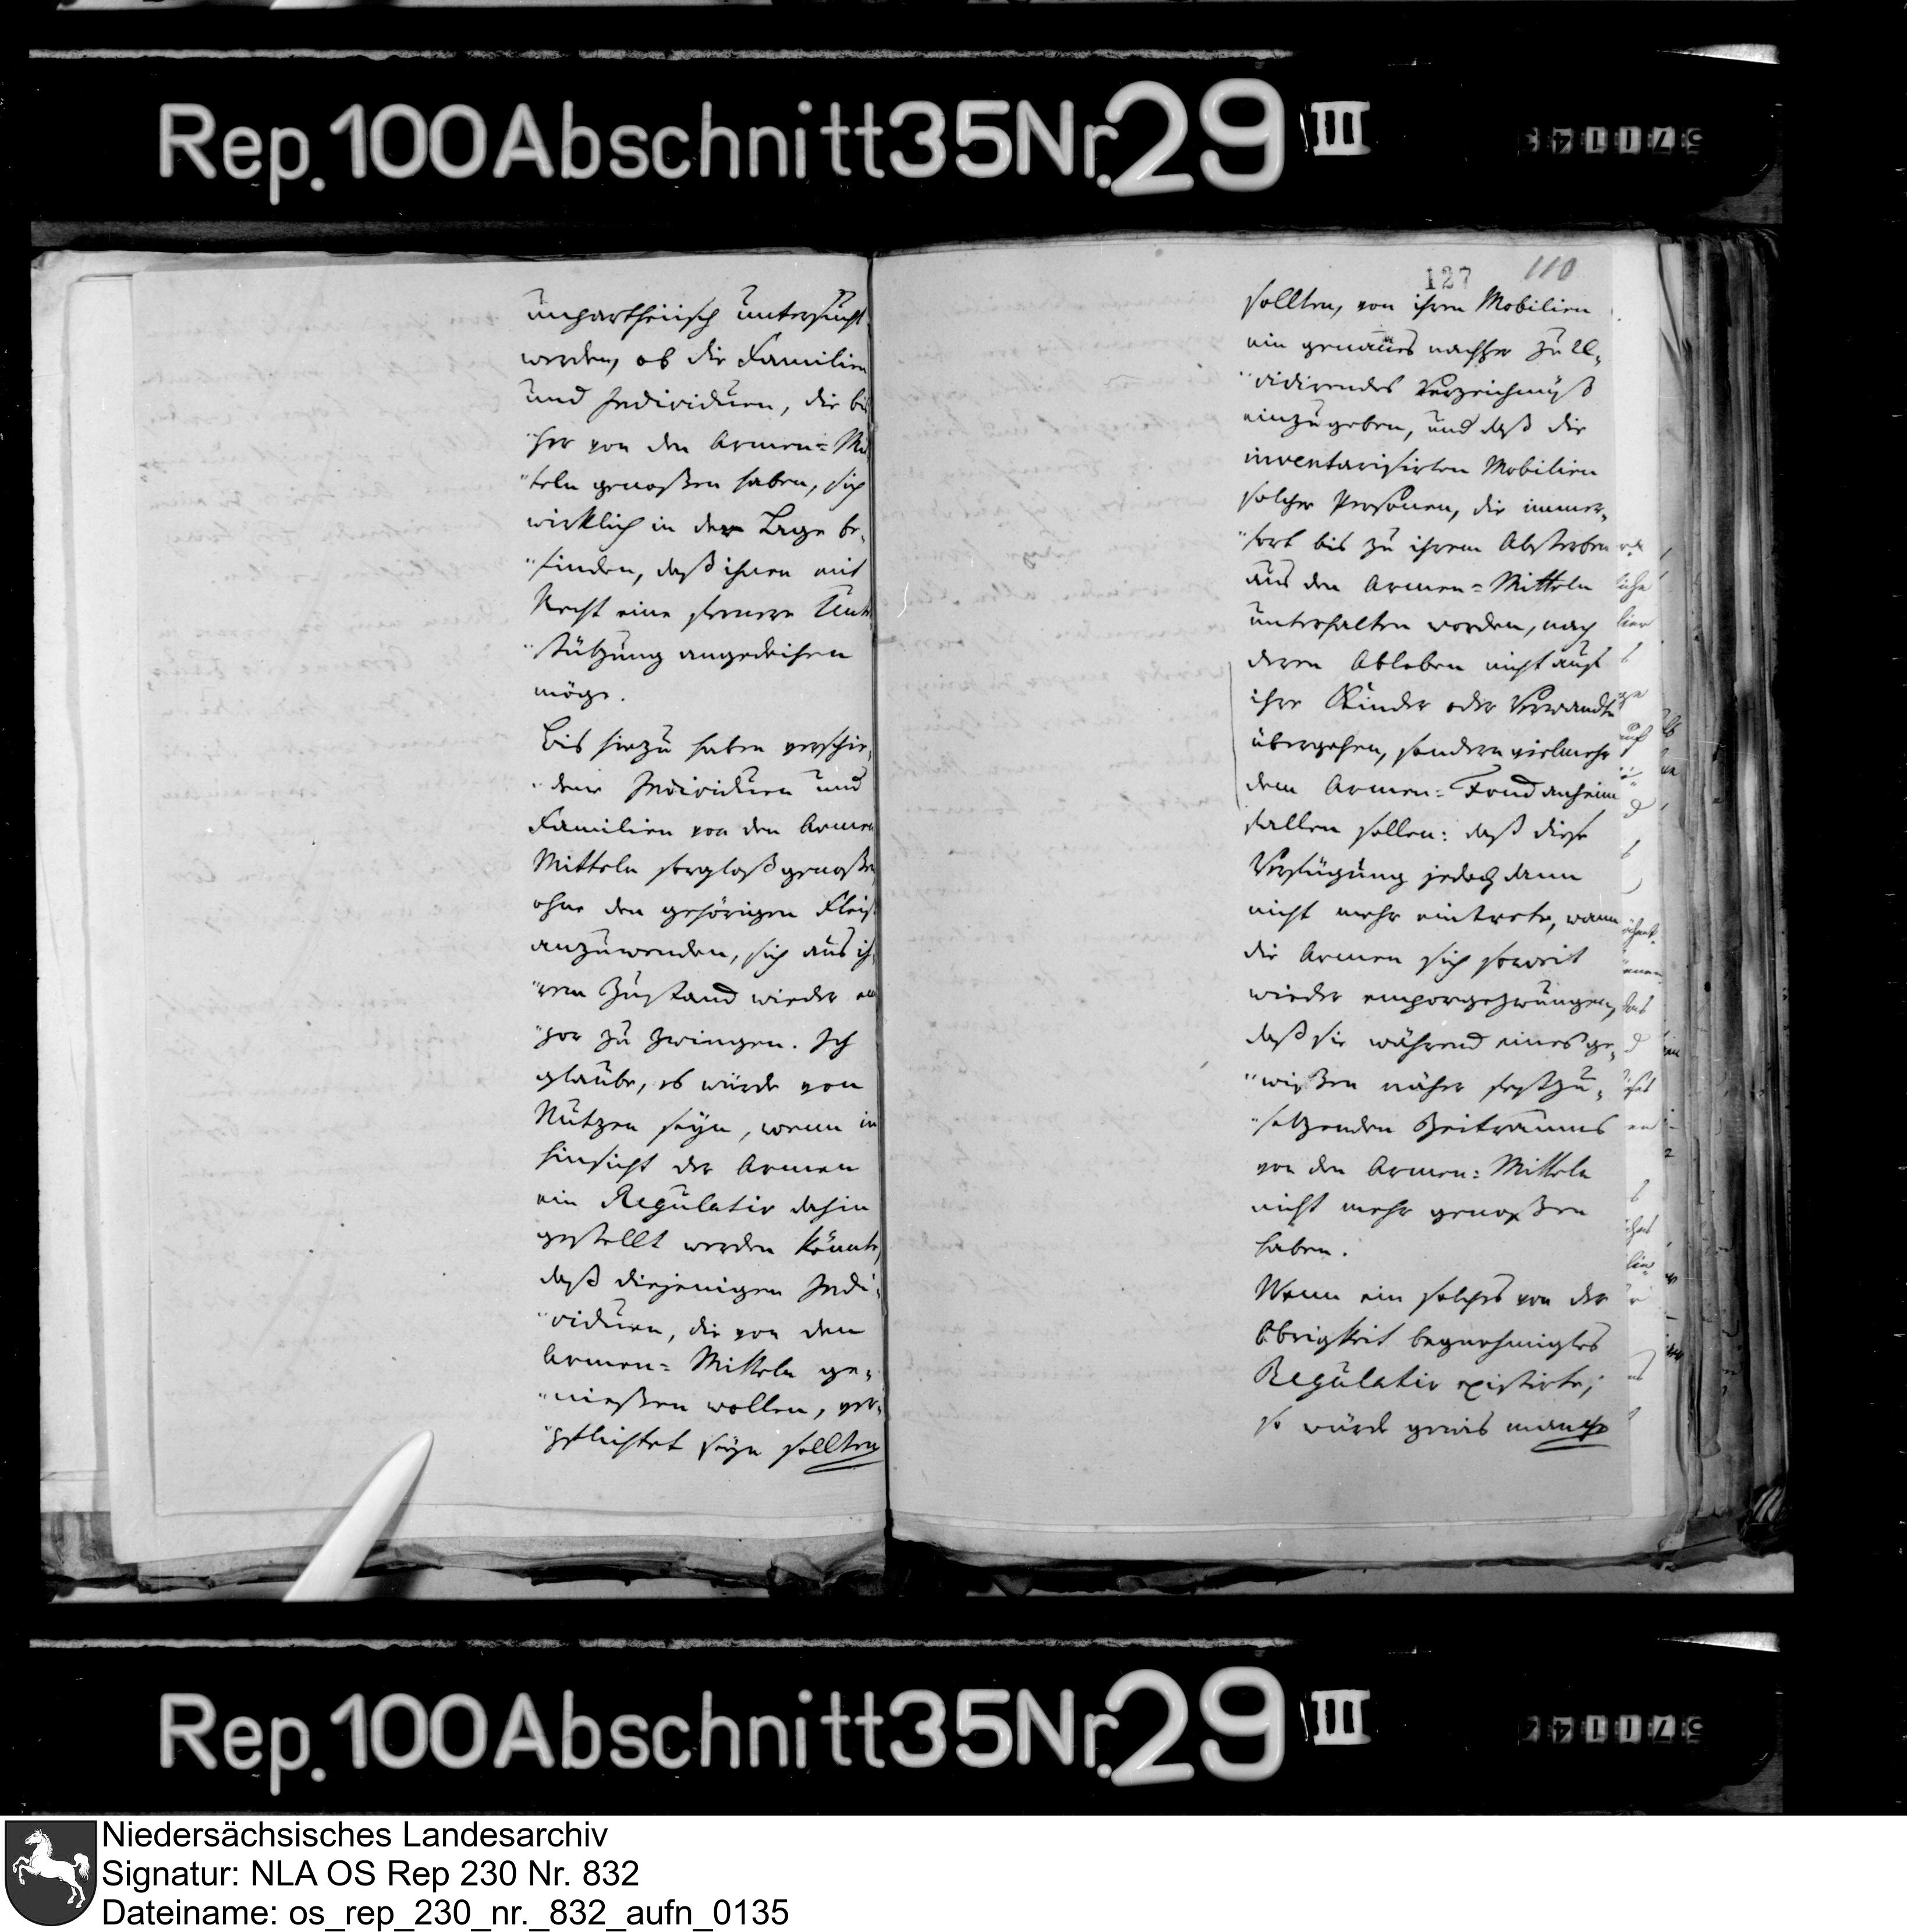 Rep. 100 Abschnitt 35 Nr. 29 III
unpartheiisch untersucht
werden, ob die Familien
und Individuen, die bis
"her von den Armen=Mit
"teln genoßen haben, sich
wirklich in der Lage be„
"finden, daß ihnen mit
Recht eine fernere Unter
"stützung angedeihen
möge.
Bis hiezu haben verschie„
"dene Individuen und
Familien von den Armen
Mitteln sorglos genoßen
ohne den gehörigen Fleis
anzuwenden, sich aus ih„
"rem Zustand wieder em
"por zu zwingen. Ich
glaube, es würde von
Nutzen seyn, wenn in
Hinsicht der Armen
ein Regulativ dahin
gestellt werden könnte,
daß diejenigen Indi„
"viduen, die von den
Armen= Mitteln ge„
"nießen wollen, ver„
"pflichtet seyn sollten
127
110
sollten, von ihren Mobilien
ein genaues nachher zu
"vidirendes Verzeichnyß
einzugeben, und daß die
inventarisirten Mobilien
solcher Personen, die immer„
"fort bis zu ihrem Absterben
aus den Armen=Mitteln
unterhalten worden, nach
deren Ableben nicht auf
ihre Kinder oder Verwandte
übergehen, sondern vielmehr
dem Armen=Fond anheim
fallen sollen: daß diese
Verfügung jedoch dann
nicht mehr eintrete, wann
die Armen sich soweit
wieder emporgezwungen,
daß sie während eines ge„
"wißen näher festzu„
"setzenden Zeitraums
von den Armen=Mitteln
nicht mehr genoßen
haben.
Wenn ein solches von der
Obrigkeit begnehmigtes
Regulativ existirte;
so würde gewis manche
Rep. 100 Abschnitt 35 Nr. 29 III
Niedersächsisches Landesarchiv
Signatur: NLA OS Rep 230 Nr. 832
Dateiname: os_rep_230_nr._832_aufn_0135